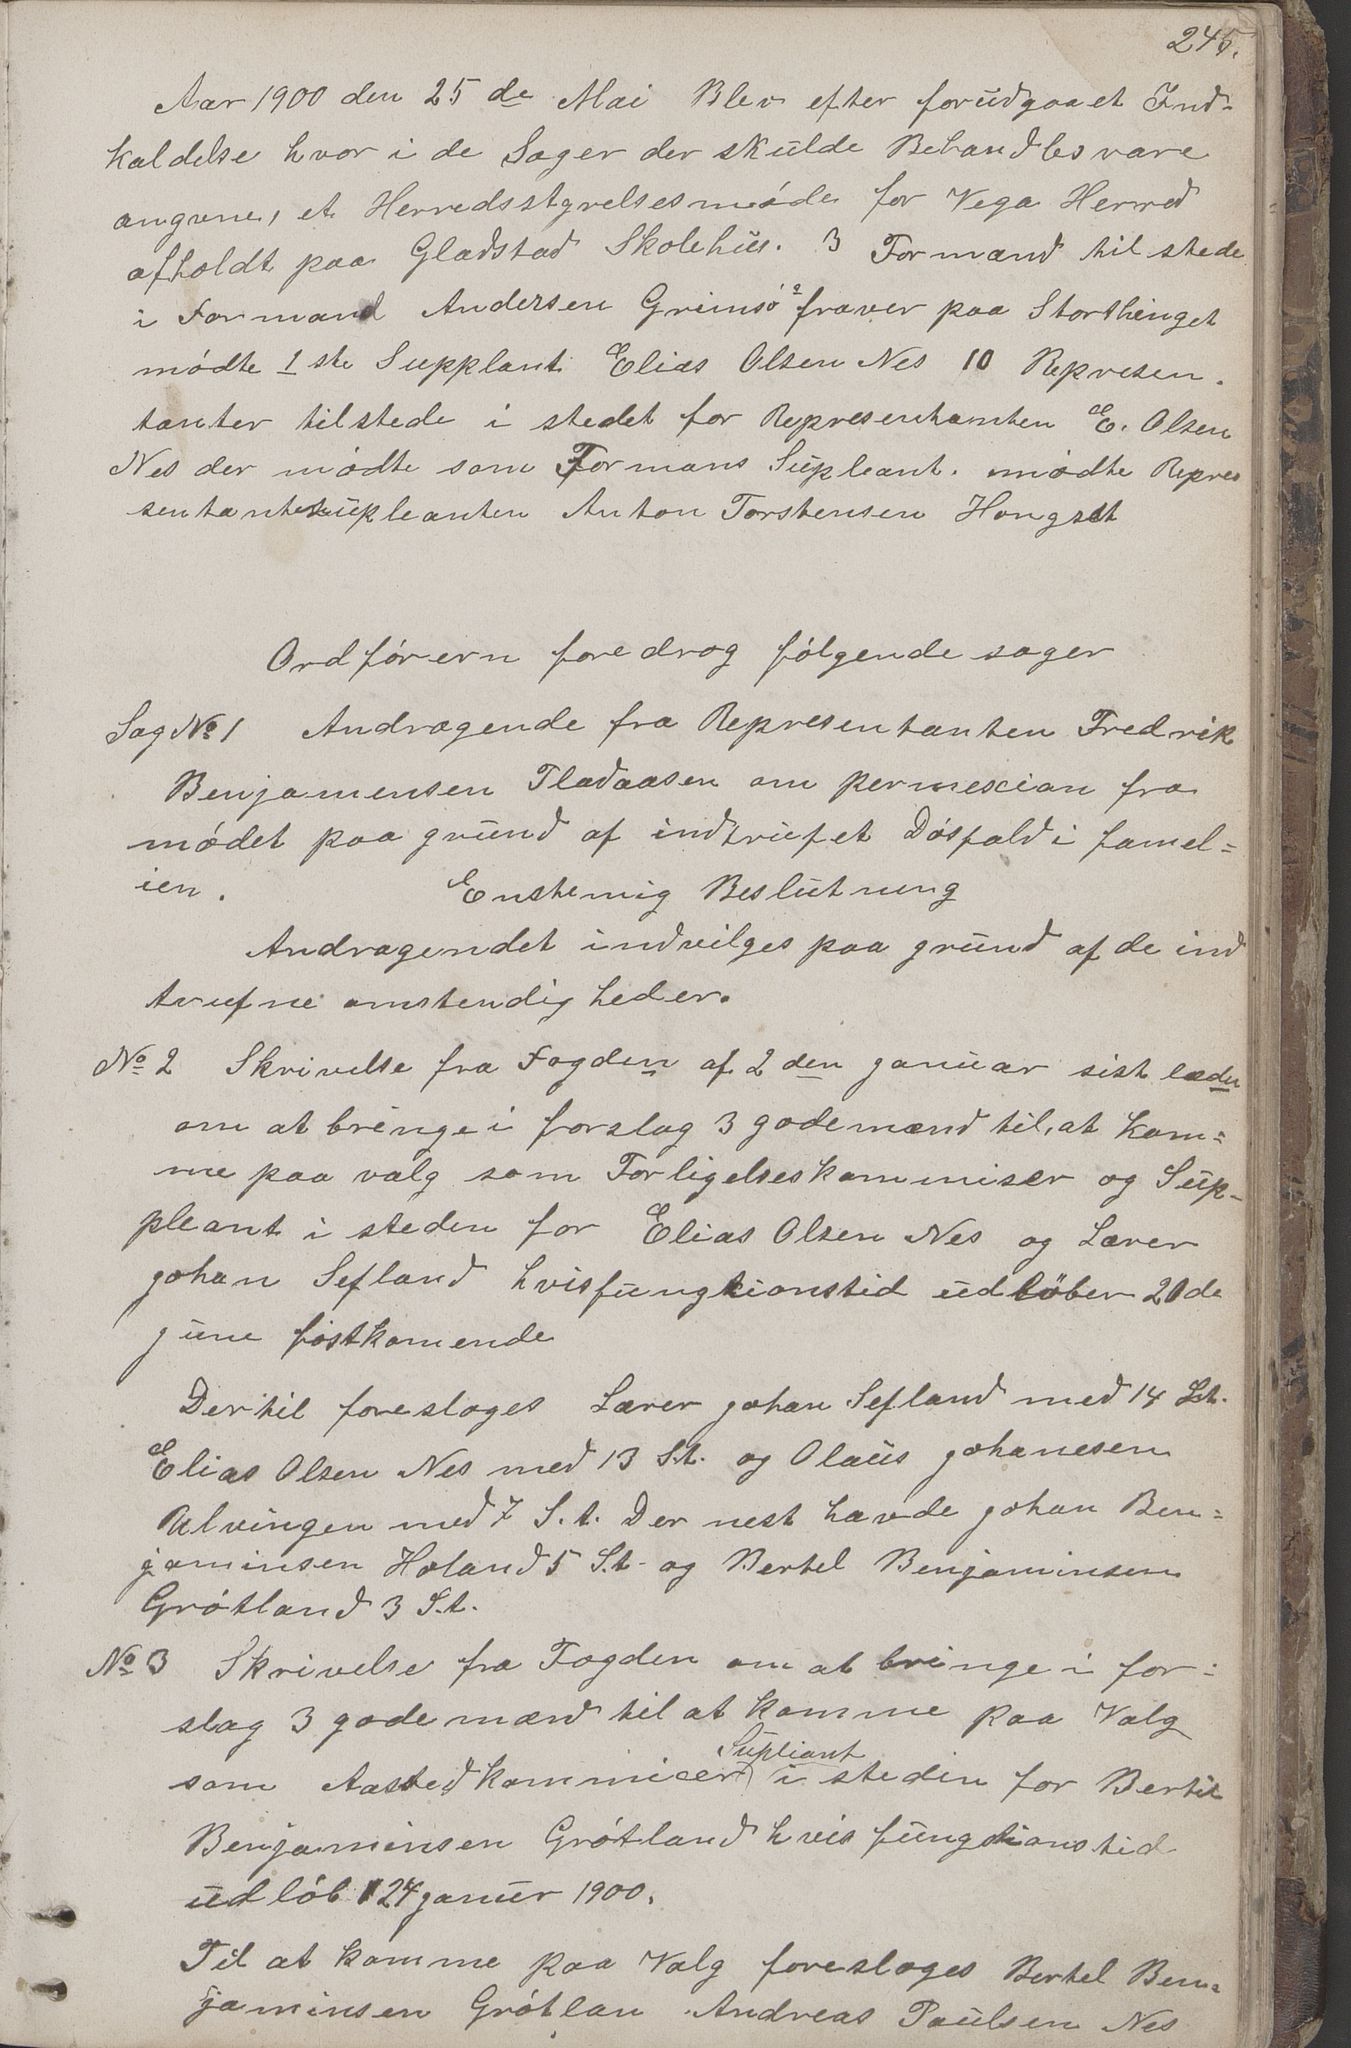 245.
Aar 1900 den 25 de Mai Blev efter forudgaaet Ind-
kaldelse hvor i de Sager der skulde Behandles vare
angivne, et Herredsstyrelsesmøde for Vega Herred
afholdt paa Gladstad Skolehus. 3 Formænd til stede
i Formand Andersen Grimsø's fraver paa Storthinget
mødte 1ste Supplant Elias Olsen Nes 10 Represen-
tanter tilstede i stedet for Representanten E. Olsen
Nes der mødte som Formans Supleant. mødte Repres
sentantsupleanten Anton Torstensen Hongset
Ordførern foredrog følgende sager
Sag No 1 Andragende fra Representanten Fredrik
Benjamensen Fladaasen om permesion fra
mødet paa grund af indtrufet Døsfald i famel=
ien. Enstemig Beslutning
Andragendet indvilges paa grund af de ind
trufne omstendigheder.
No 2 Skrivelse fra Fogden af 2 den januar sist læden
om at bringe i forslag 3 godemænd til, at kom=
me paa valg som Forligelseskommiser og Sup-
pleant i steden for Elias Olsen Nes og Lærer
johan Sefland hvis fungtionstid udløber 21de
juneføstkomende
Dertil foresloges Lærer johan Sefland med 14 St.
Elias Olsen Nes med 13 S.t. og Olaus johanesen
Ulvingen med 7 S.t. Der nest havde johan Ben=
jaminsen Holand 5 S.t. og Bertel Benjaminsen
Grøtland 3 S.t.
No 3 Skrivelse fra Fogden om at bringe i for=
slag 3 godemænd til at komme paa Valg
som Aastedkommicer Supliant i stedin for Bertil
Benjaminsen Grøtland hvis fungtionstid
udløb 24 janur 1900.
Til at komme paa Valg foresloges Bertel Ben=
jaminsen Grøtlan Andreas Paulsen Nes